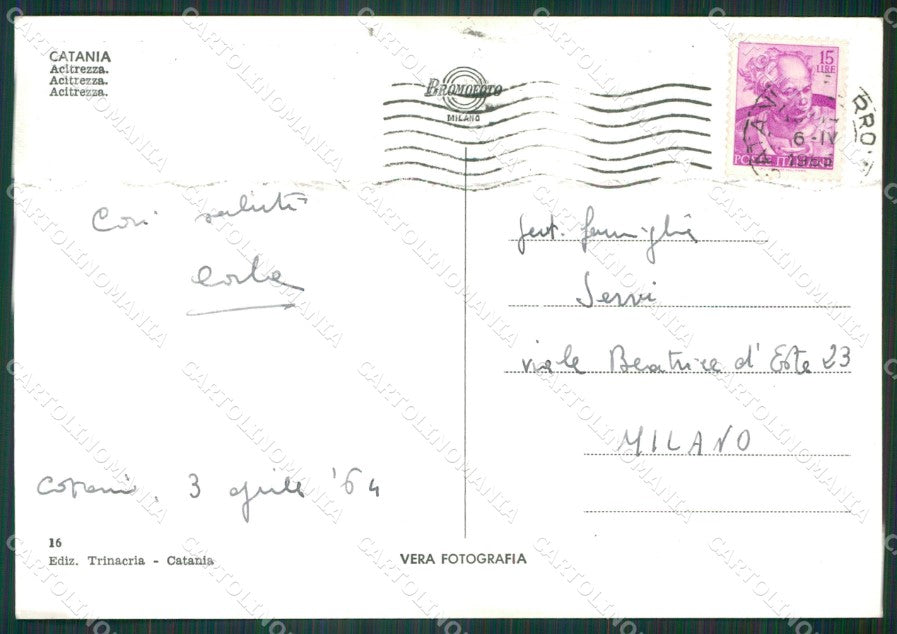 CATANIA
Acitrezza.
Acitrezza.
Acitrezza.
BROMOFOTO
MILANO
15
LIRE
POSTE ITALIANE
6-IV
Con saluti
Carla
Gent. famiglia
Servi
viale Beatrice d'Este 23
MILANO
Catania, 3 aprile '64
16
Ediz. Trinacria - Catania
VERA FOTOGRAFIA
CARTOLINOMANIA